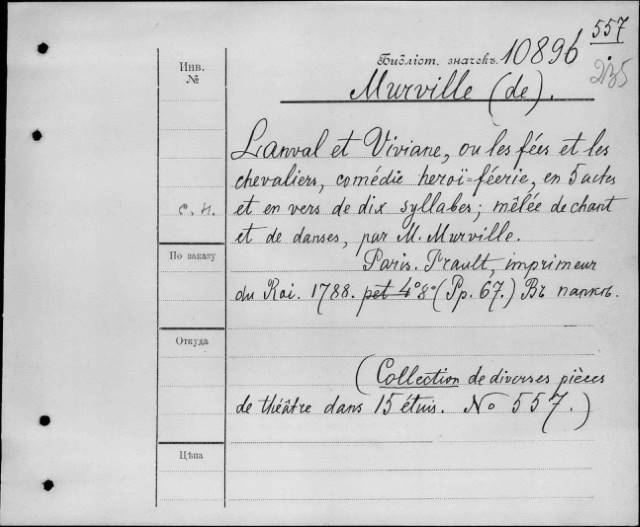 557
Библіот. значекъ 10896
235
Инв.
№
Murville (de).
Lanval et Viviane, ou les fées et les
chevaliers, comédie heroï-féerie, en 5 actes
с. н.
et en vers de dix syllabes; mêlée de chant
et de danses, par M. Murville.
По заказу
Paris. Prault, imprimeur
du Roi. 1788. pet 4° 8° (Pp. 67.) Въ папкѣ.
Откуда
(Collection de diverses pièces
de théâtre dans 15 étuis. No 557.)
Цѣна